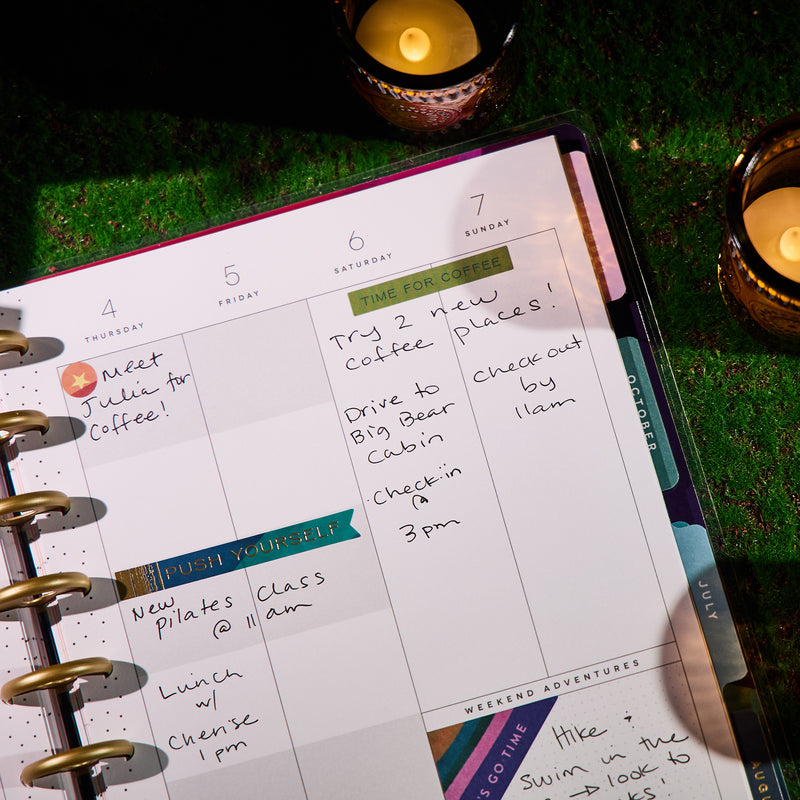 4
THURSDAY
5
FRIDAY
6
SATURDAY
7
SUNDAY
Meet
Julia for
Coffee!
PUSH YOURSELF
New
Pilates Class
@ 11 am
Lunch
w/
Cherise
1 pm
TIME FOR COFFEE
Try 2 new
coffee places!
Drive to
Big Bear
Cabin
Check-in
@
3pm
Check out
by
11am
WEEKEND ADVENTURES
'S GO TIME
Hike +
Swim in the
→ look to
OCTOBER
JULY
AUGU